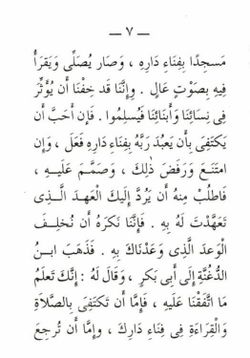 — ٧ —
مَسجدًا بِفِنَاءِ دَارِهِ ، وَصَار يُصَلِّى وَيَقرَأُ
فِيهِ بِصَوْتٍ عَالٍ . وَإِنَّنَا قَد خِفْنَا أَن يُؤَثِّرَ
فِى نِسَائِنَا وَأَبنَائِنَا فَيُسلِمُوا . فَإِن أَحَبَّ أَن
يَكتَفِىَ بِأَن يَعبُدَ رَبَّهُ بِفِنَاءِ دَارِهِ فَعَلَ ، وَإِن
امتَنَعَ وَرَفَضَ ذٰلِكَ ، وَصَمَّمَ عَلَيهِ ،
فَاطلُب مِنهُ أَن يَرُدَّ إِلَيكَ العَهدَ الَّذِى
تَعَهَّدتَ لَهُ بِهِ . فَإِنَّنَا نَكرَهُ أَن نُخلِفَ
الوَعدَ الَّذِى وَعَدْنَاكَ بِهِ . فَذَهَبَ ابنُ
الدُّغُنَّةِ إِلَى أَبِى بَكرٍ ، وَقَالَ لَهُ : إِنَّكَ تَعلَمُ
مَا اتَّفَقْنَا عَلَيهِ ، فَإِمَّا أَن تَكتَفِىَ بِالصَّلَاةِ
وَالقِرَاءَةِ فِى فِنَاءِ دَارِكَ ، وَإِمَّا أَن تُرجِعَ